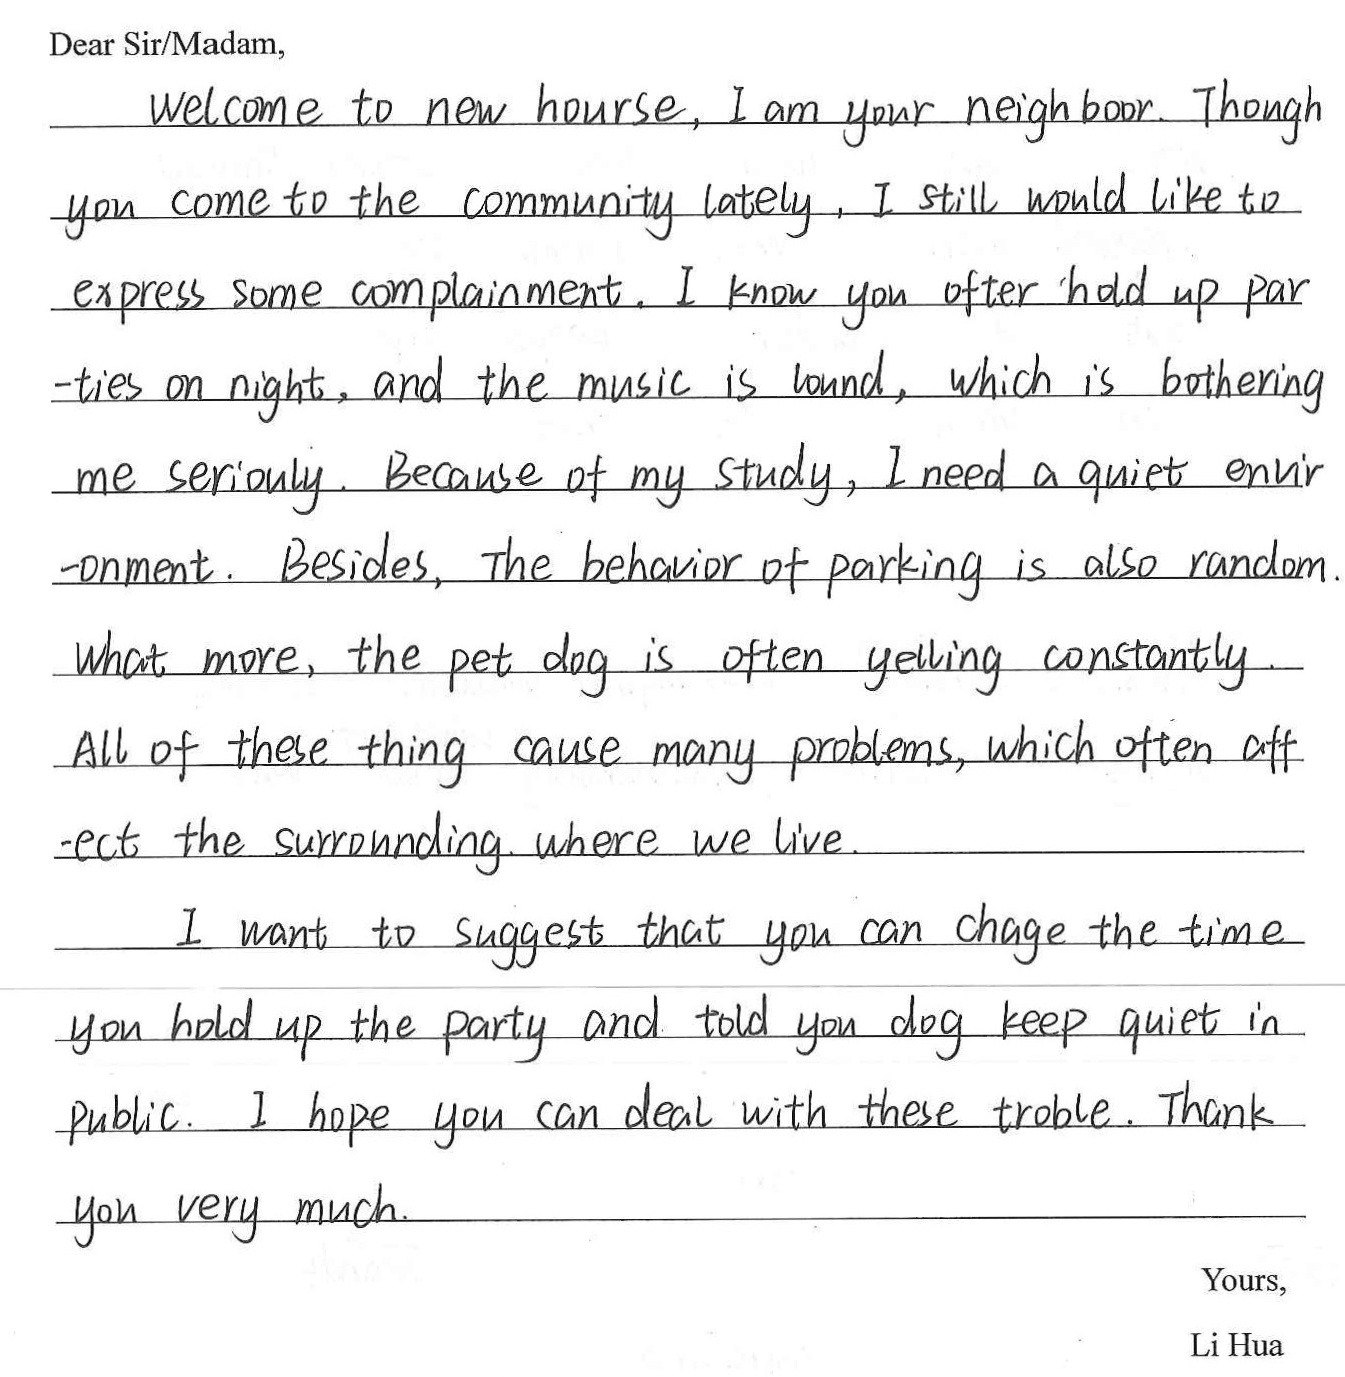 Dear Sir/Madam,
Welcome to new hourse, I am your neighboor. Though
you come to the community lately, I still would like to
express some complainment. I know you ofter hold up par
-ties on night, and the music is lound, which is bothering
me seriouly. Because of my study, I need a quiet envir
-onment. Besides, The behavior of parking is also random.
What more, the pet dog is often yelling constantly.
All of these thing cause many problems, which often aff
-ect the surrounding. where we live.
I want to suggest that you can chage the time
you hold up the party and told you dog keep quiet in
public. I hope you can deal with these troble. Thank
you very much.
Yours,
Li Hua